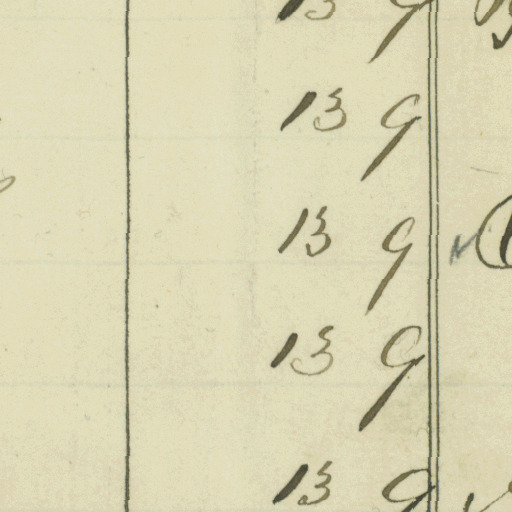 13 9
13 9
13 9
13 9
13 9